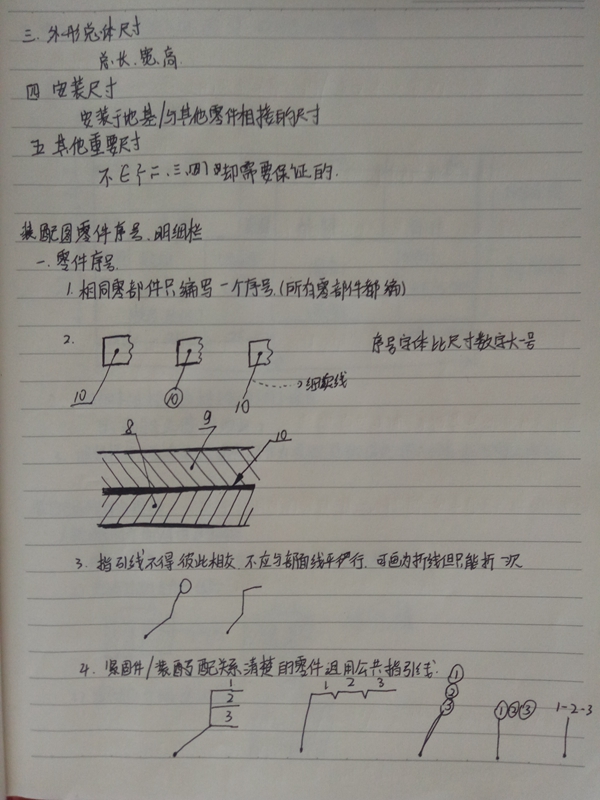 三.外形总体尺寸
总.长.宽.高.
四 安装尺寸
安装于地基/与其他零件相接的尺寸
五 其他重要尺寸
不在一、二、三、四中却需要保证的.
装配图零件序号.明细栏
一.零件序号.
1.相同零部件只编写一个序号.(所有零部件都编)
2.
序号字体比尺寸数字大一号
10
10
10
细实线
8
9
10
3.指引线不得彼此相交.不应与剖面线平行.可画为折线但只能折一次
4.紧固件/装配关系清楚的零件组用公共指引线.
1
2
3
1 2 3
①
②
③
①②③
1-2-3